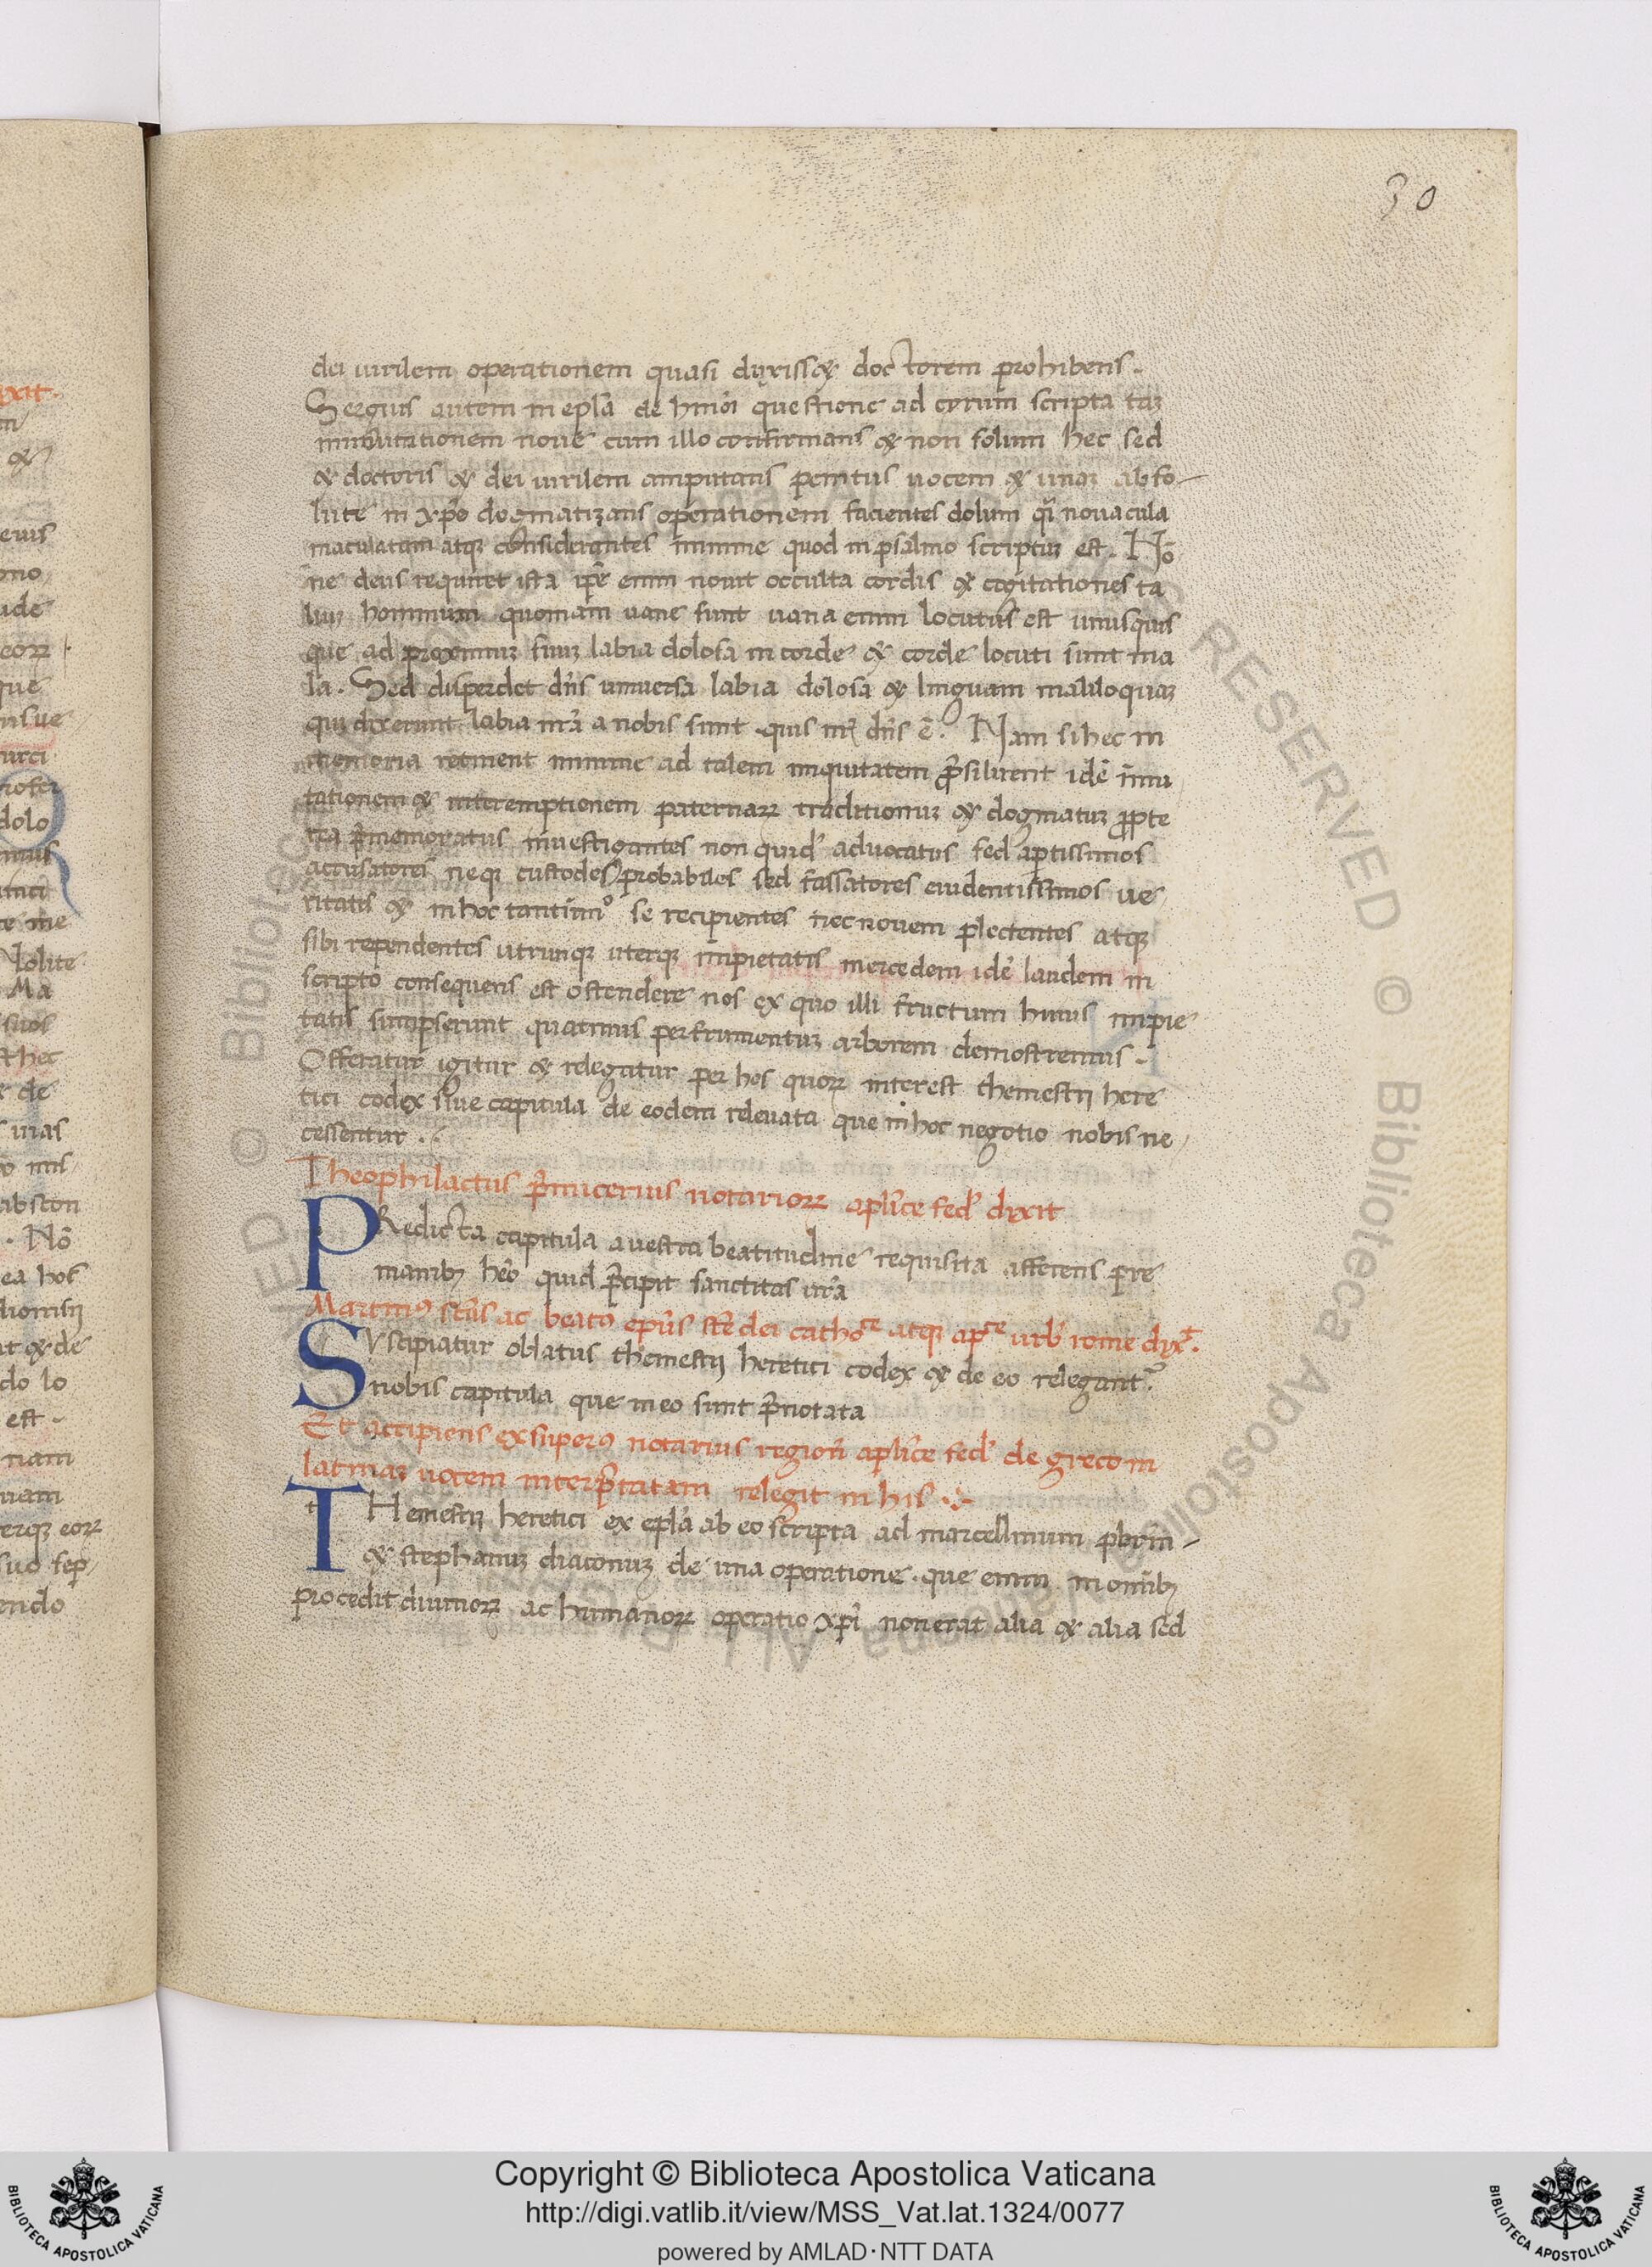 30
dei uirilem operationem quasi dixiss& doctorem prohibens.
Sergius autem in epl̄a de hm̄oi questione ad cyrum scripta taꝫ
inmutationem noue cum illo confirmans & non solum hec sed
& doctoris & dei uirilem amputans penitus uocem & unaꝫ abso
lute in xp̄o dogmatizans operationem facientes dolum qͣi nouacula
maculatam atqꝫ considerantes minime quod in psalmo scriptuꝫ est. Nō
ne deus requiret ista ip̄e enim nouit occulta cordis & cogitationes ta
liuꝫ hominum quoniam uane sunt uana enim locutus est unusquis
que ad proximuꝫ suuꝫ labia dolosa in corde & corde locuti sunt ma
la. Sed disperdet dn̄s uniuersa labia dolosa & linguam maliloquaꝫ
qui dixerunt labia nr̄a a nobis sunt quis nr̄ dn̄s ē. Nam si hec in
memoria retinent minime ad talem iniquitatem ꝓsilirent idē inmu
tationem & interemptionem paternaꝝ traditionuꝫ & dogmatuꝫ ꝓpte
rea p̄memoratus inuestigantes non quid' aduocatus sed aptissimos
accusatores neqꝫ custodes probabiles sed falsatores euidentissimos ue
ritatis & in hoc se recipientes nec nouem plectentes atqꝫ
sibi rependentes utrunqꝫ uterqꝫ impietatis mercedem idē laudem in
scripto consequens est ostendere nos ex quo illi fructum huius impie
tatis sumpserunt quatinus per frumentuꝫ arborem demostremus.
Offeratur igitur & relegatur per hos quoꝝ interest themestii here
tici codex siue capitula de eodem releuata que in hoc negotio nobis ne
cessentur.
Theophilactus p̄micerius notarioꝝ apl̄ice sed' dixit
PRedicta capitula a uestra beatitudine requisita afferens pre
manibꝫ hēo quid p̄cipit sanctitas ur̄a
Martinꝰ scūs ac beatꝰ ep̄us scē dei cathoce atqꝫ apce urb' rome dixt.
SVscipiatur oblatus themestii heretici codex & de eo relegant᷑
nobis capitula que in eo sunt p̄notata
Et accipiens exsuperꝰ notarius region̄ apl̄ice sed' de greco in
latinaꝫ uocem interp̄tatam relegit in his
THemestii heretici ex epl̄a ab eo scripta ad marcellinum pbrm̄
& stephanuꝫ diaconuꝫ de una operatione. que enim in omībꝫ
procedit diuinoꝝ ac humanoꝝ operatio xp̄i non erat alia & alia sed
Copyright © Biblioteca Apostolica Vaticana
http://digi.vatlib.it/view/MSS_Vat.lat.1324/0077
powered by AMLAD·NTT DATA